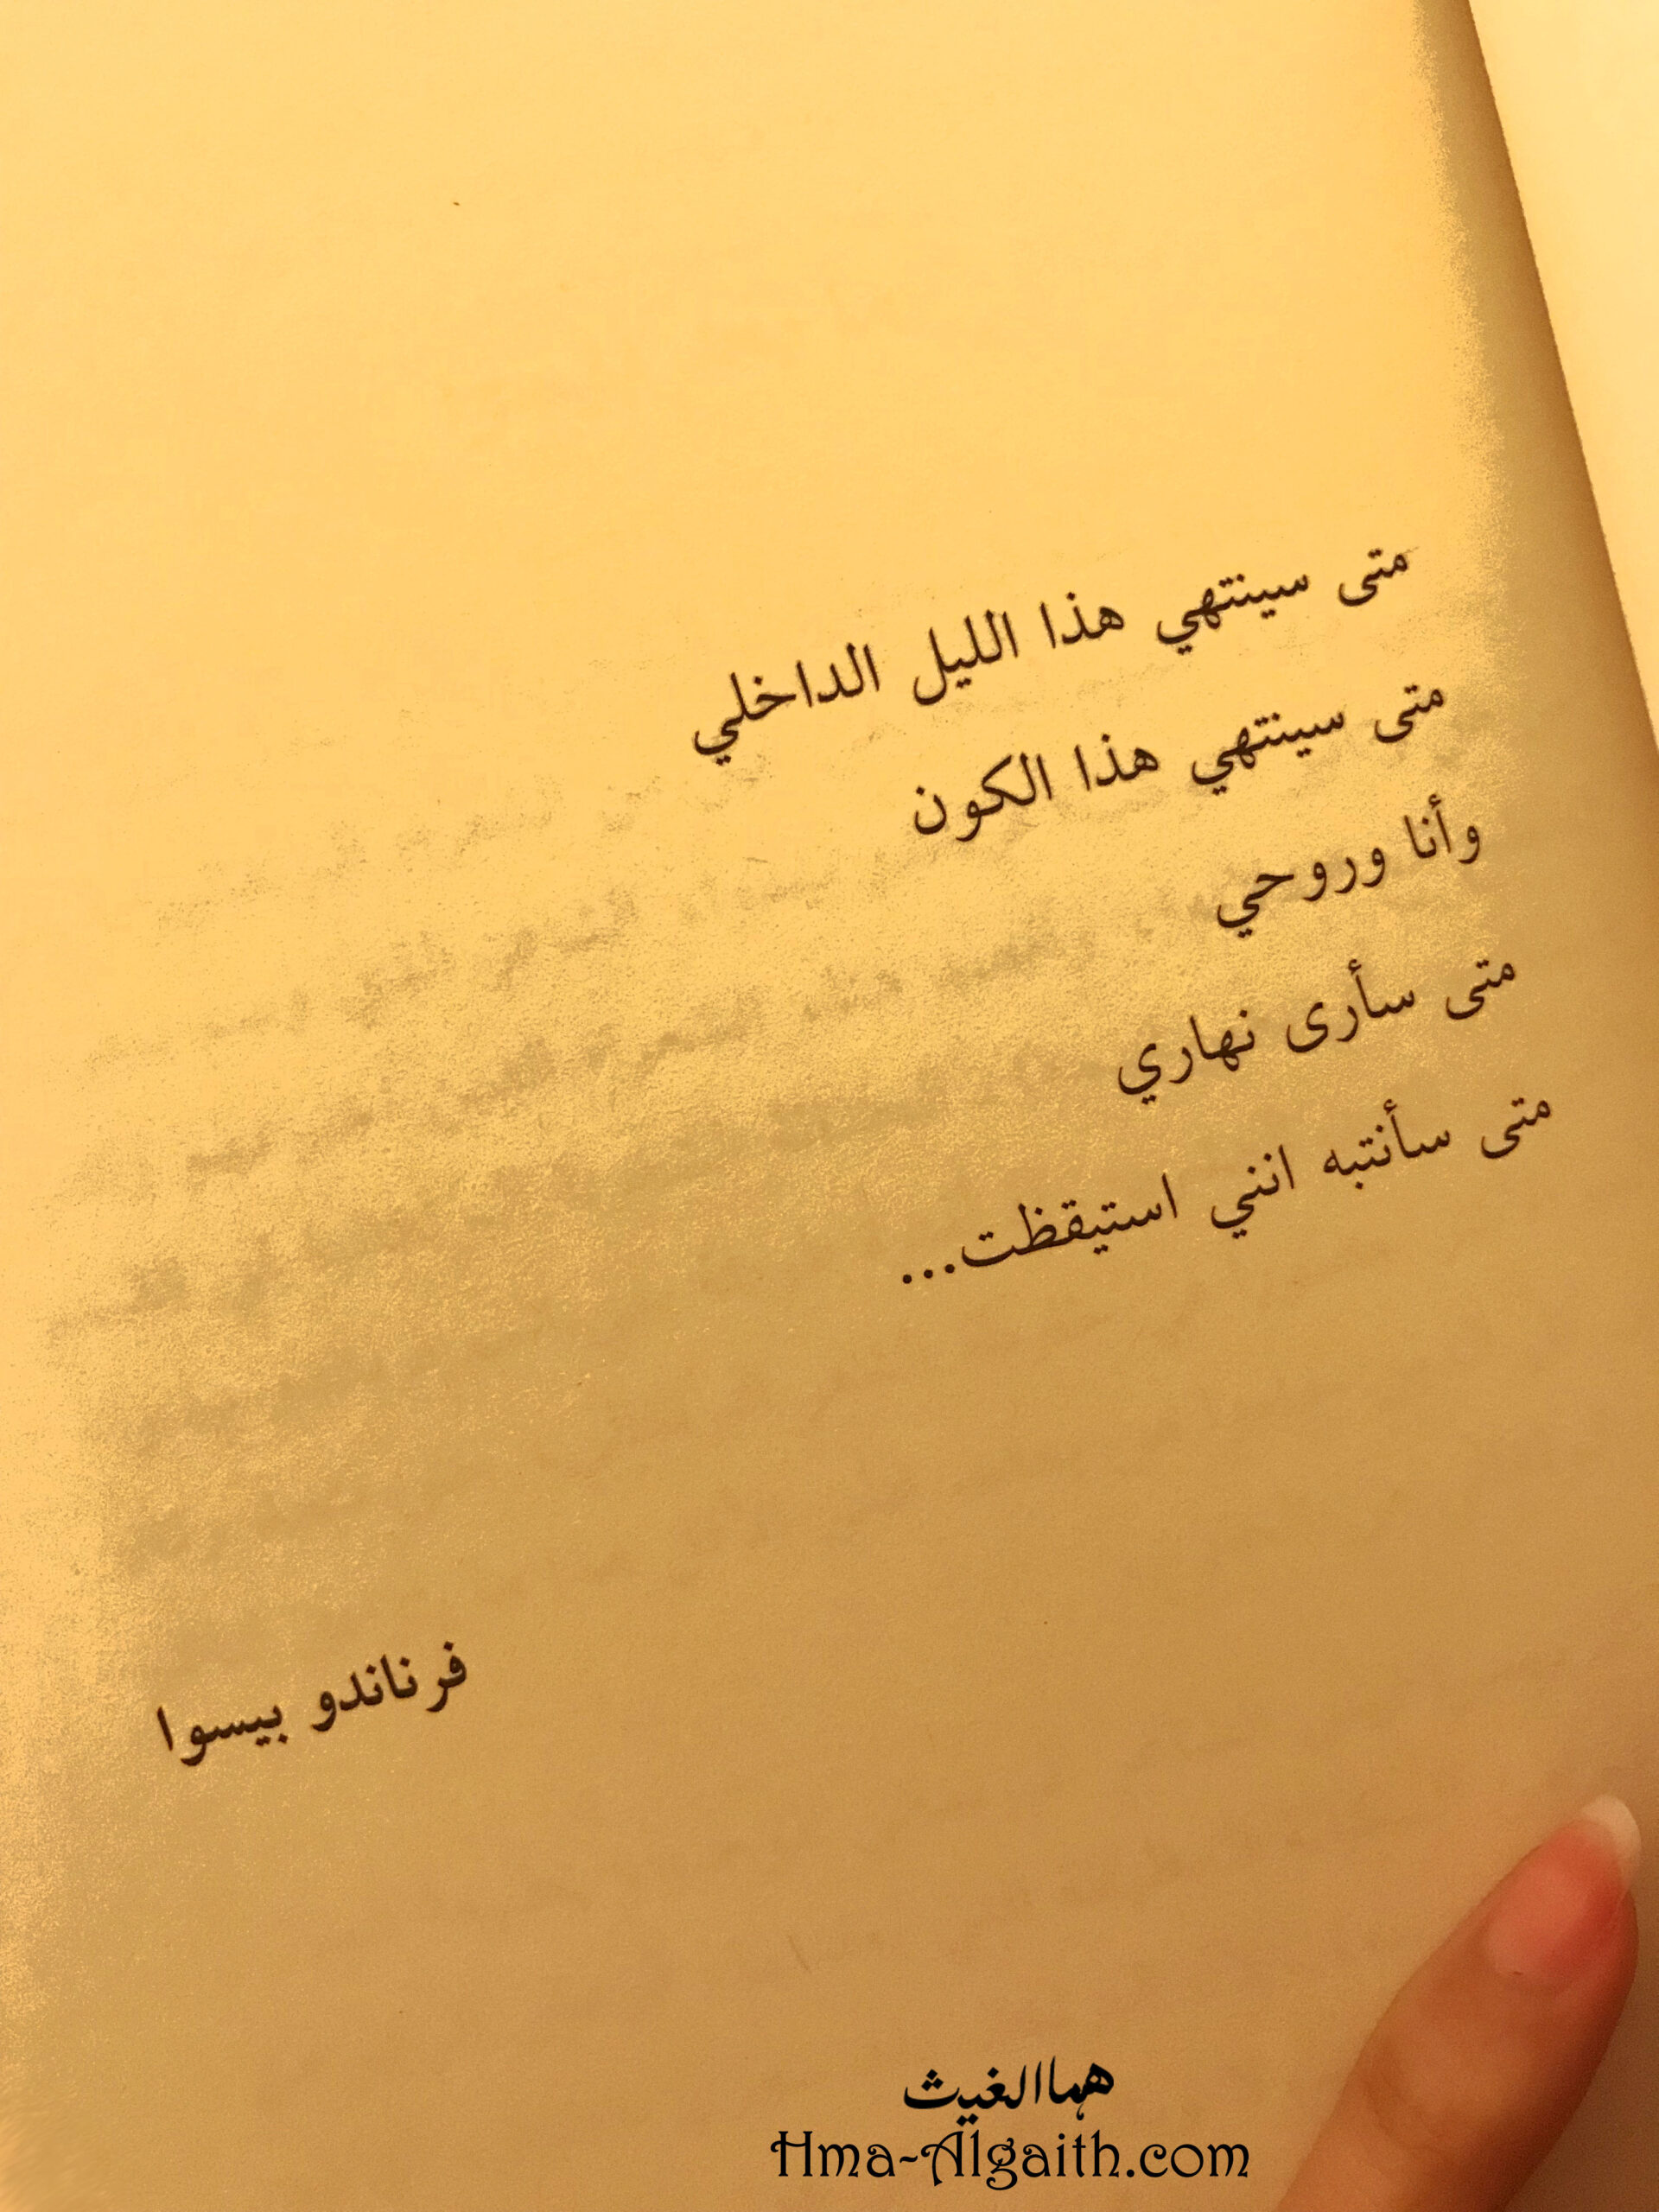 متى سينتهي هذا الليل الداخلي
متى سينتهي هذا الكون
وأنا وروحي
متى سأرى نهاري
متى سأنتبه انني استيقظت...
فرناندو بيسوا
هما الغيث
Hma-Algaith.com